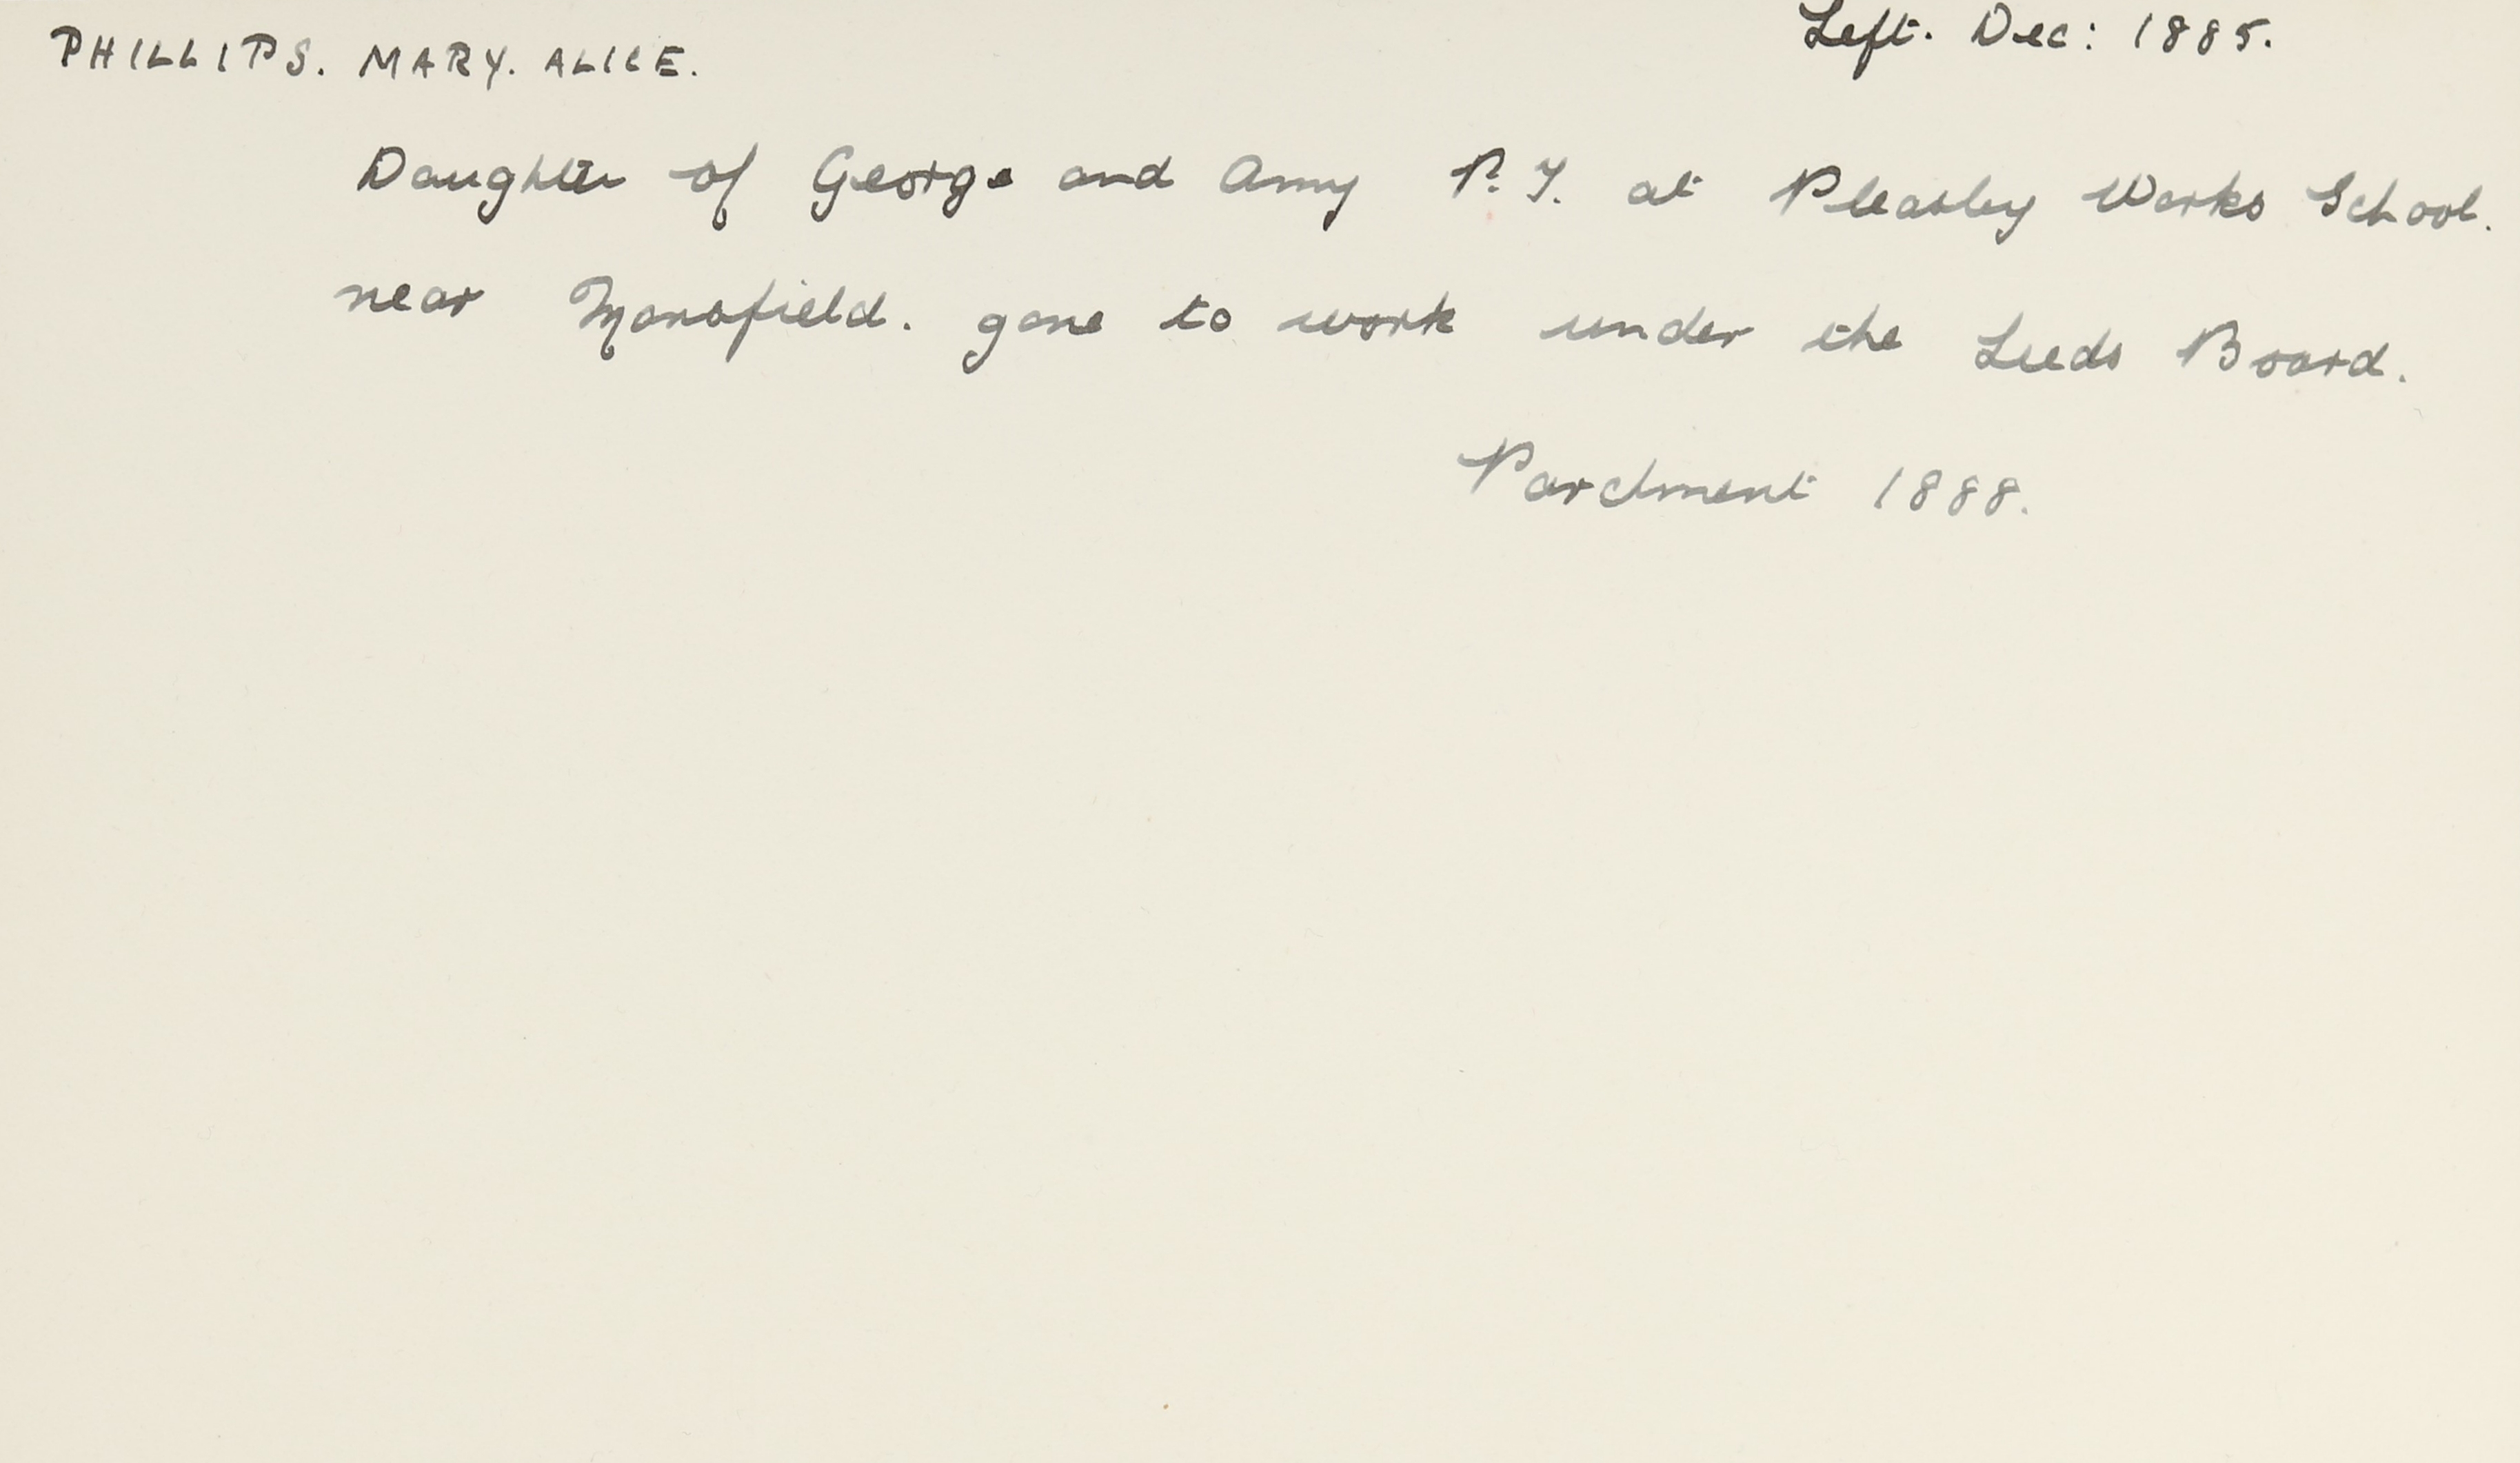 PHILLIPS. MARY. ALICE. Left. Dec: 1885.
Daughter of George and Amy P.T. at Pleasley Works School.
near Mansfield. gone to work under the Leeds Board.
Parchment 1888.